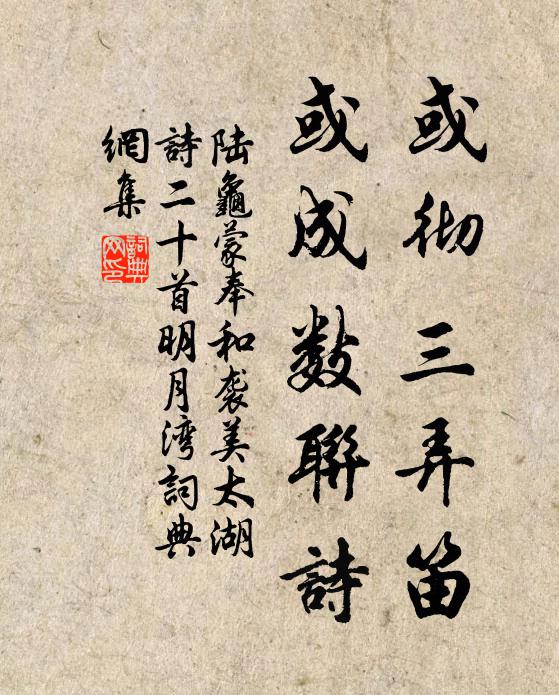 或彻三弄笛
或成数聯詩
陆龜蒙奉和袭美太湖
詩二十首明月湾詞典
網集
詞典网印